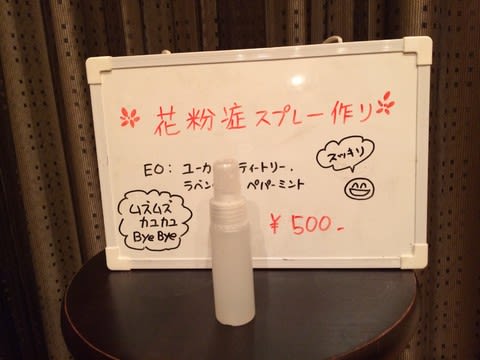 花粉症スプレー作り
EO: ユーカ ティートリー.
ラベン ペパーミント
スッキリ
ムズムズ
カユカユ
Bye Bye
¥500-